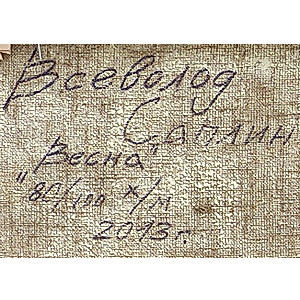 Всеволод
Саплин
"Весна"
80/100 х/м
2013г.